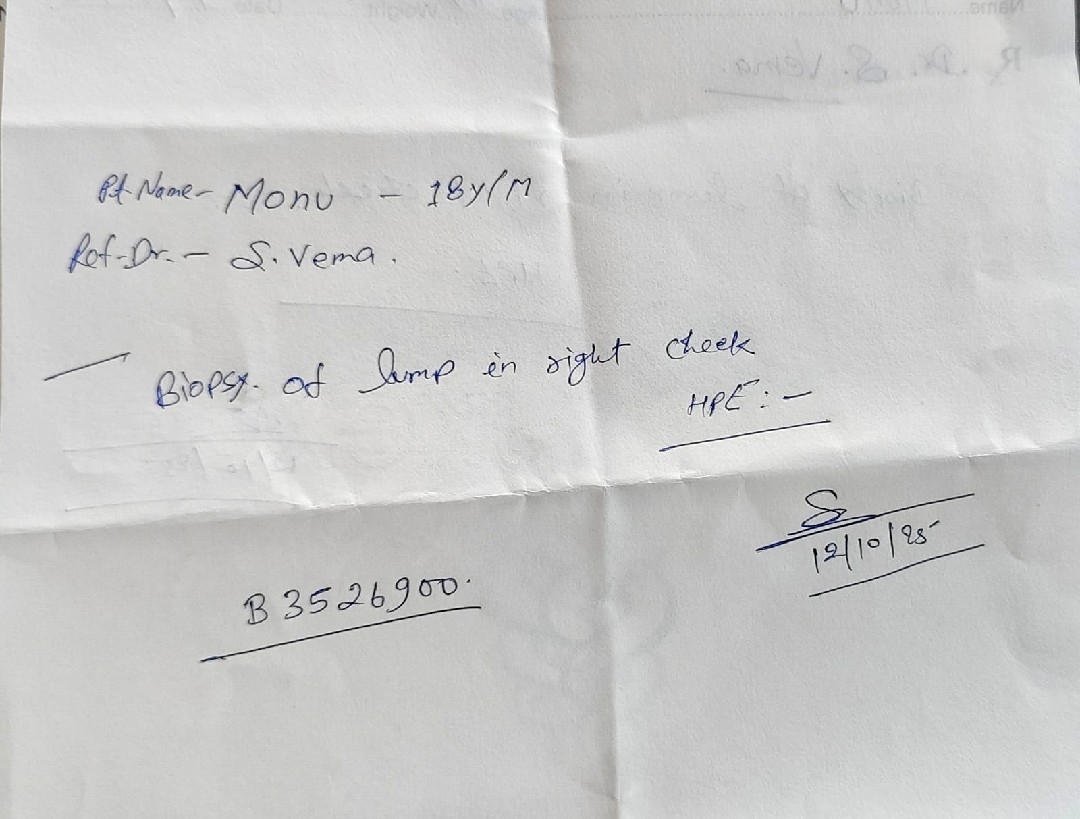 Pt Name - Monu - 18y/M
Ref-Dr. - S. Vema.
Biopsy. of lump in right cheek
HPE : -
12/10/25
B 3526900.